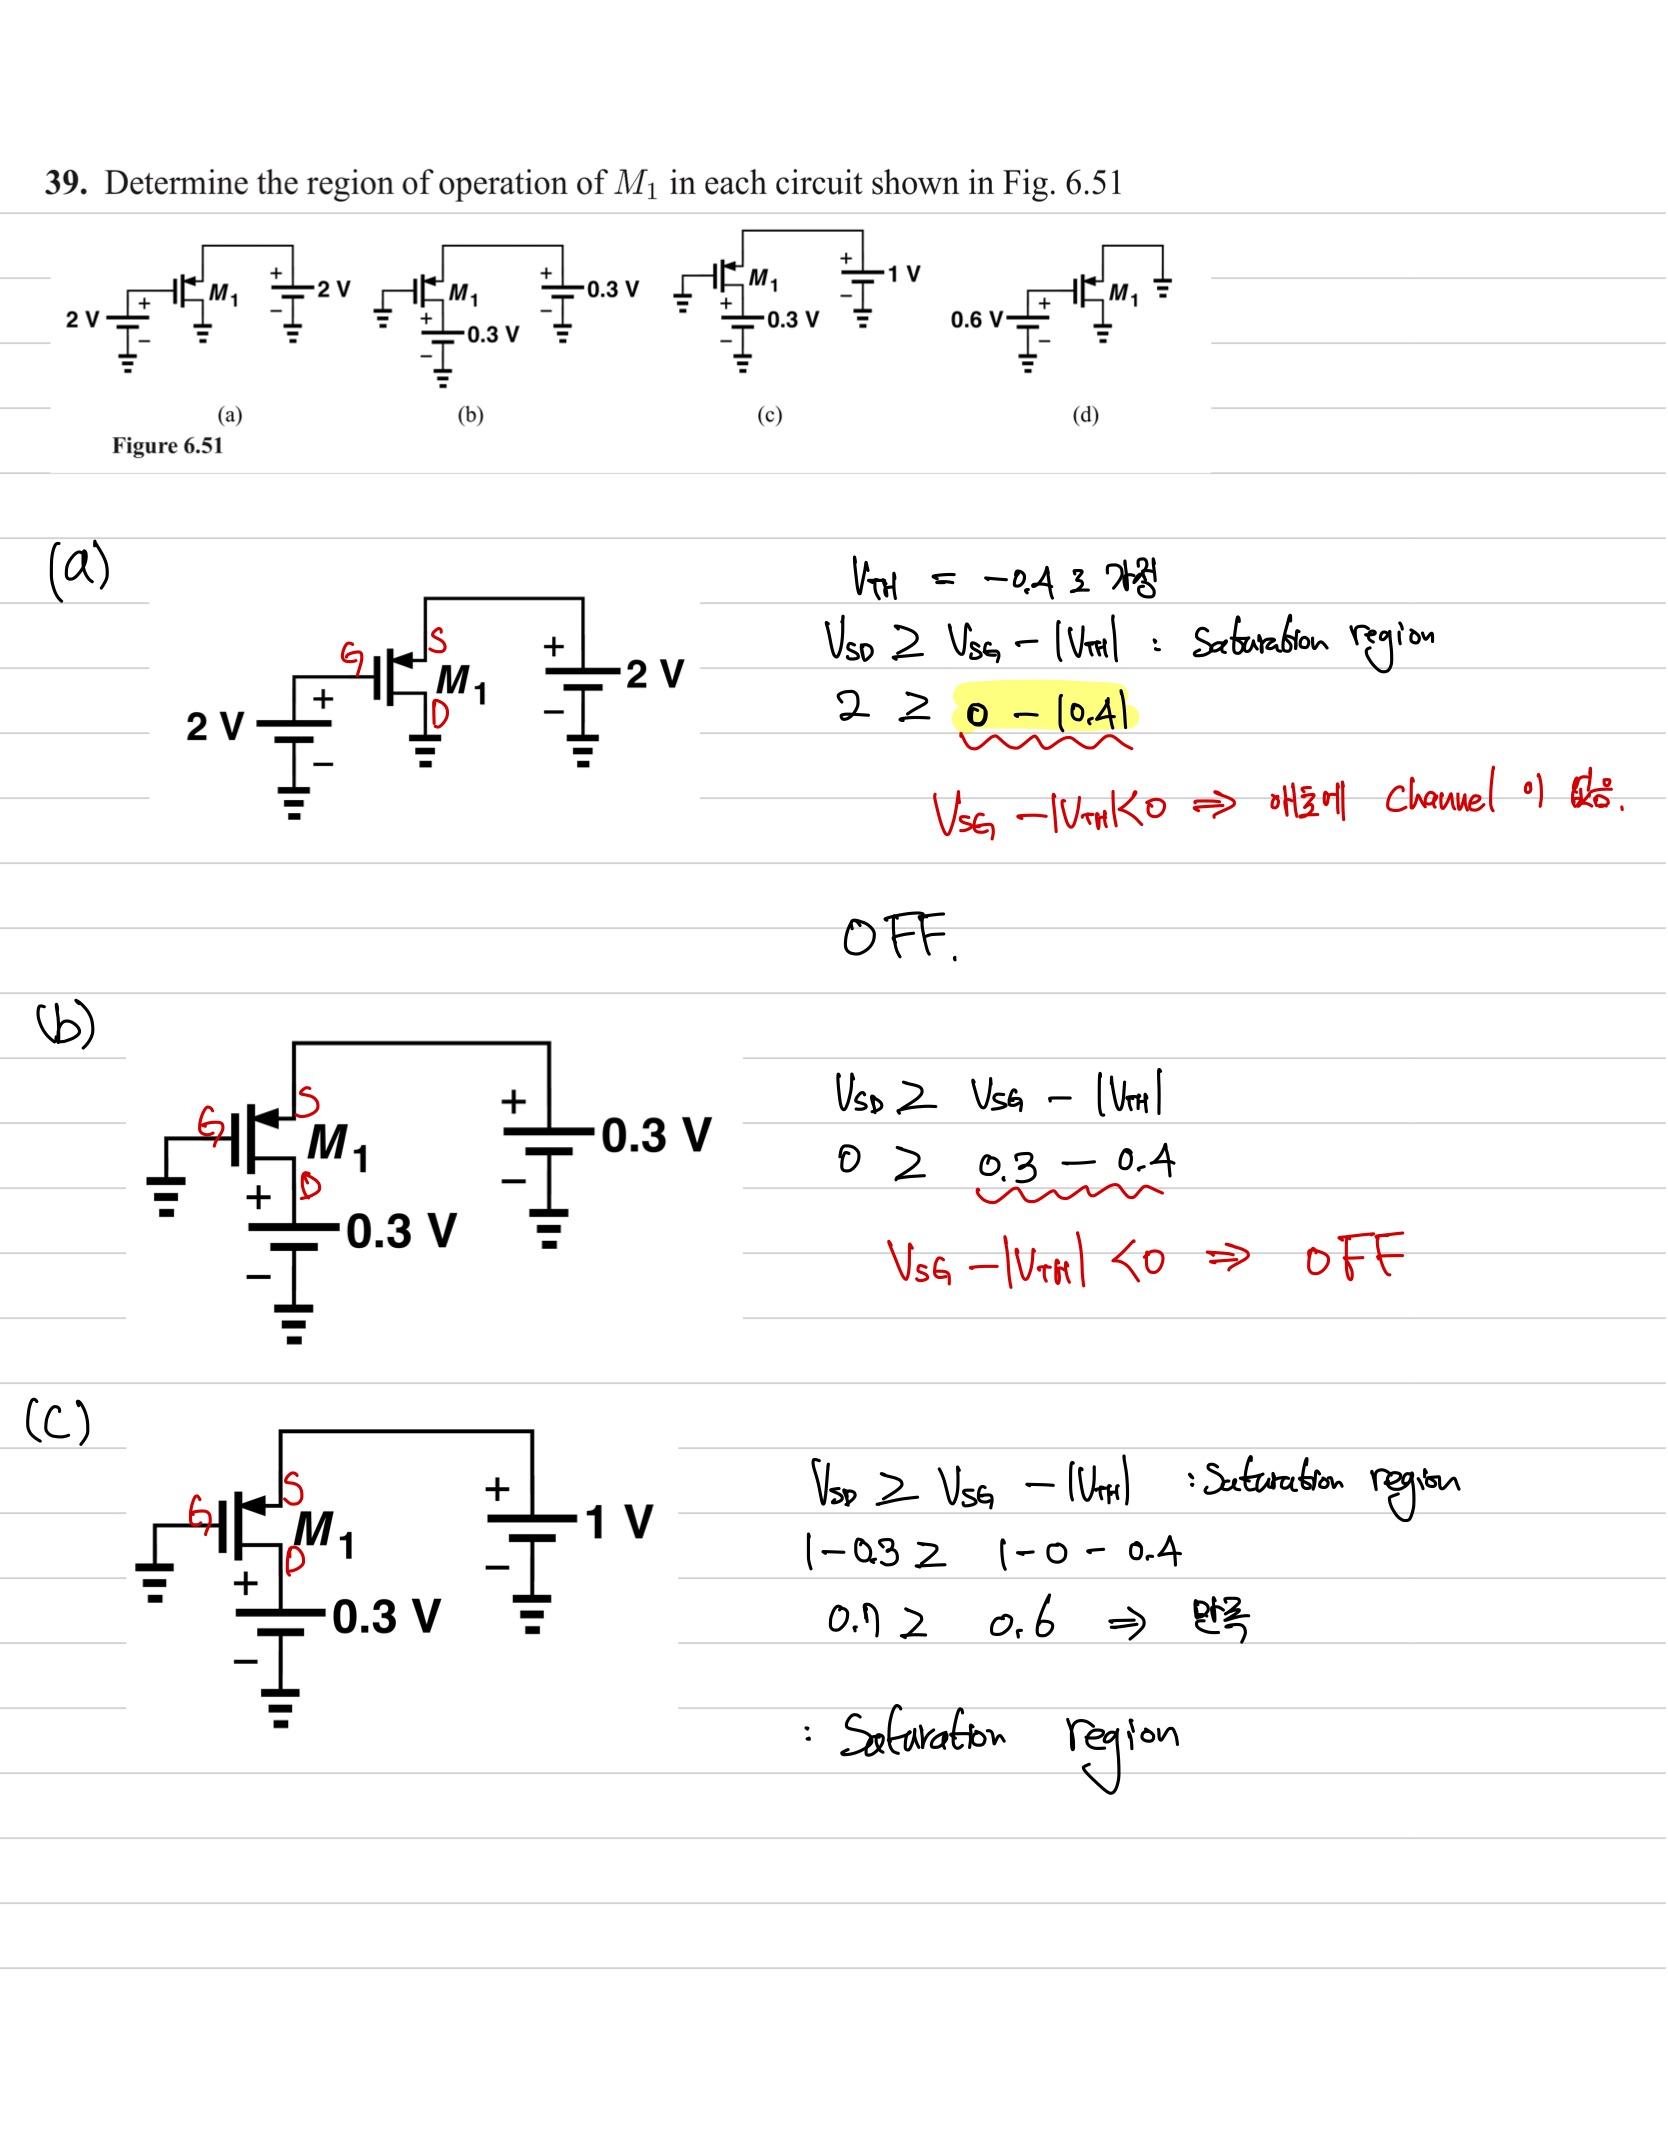 39. Determine the region of operation of M₁ in each circuit shown in Fig. 6.51
2 V + − M₁ + − 2 V
M₁ + − 0.3 V + − 0.3 V
M₁ + − 0.3 V + − 1 V
0.6 V + − M₁
(a) (b) (c) (d)
Figure 6.51
(a)
V_TH = -0.4로 가정
V_SD ≥ V_SG - |V_TH| : Saturation region
2 ≥ 0 - |0.4|
V_SG - |V_TH| < 0 ⇒ 애초에 Channel 이 없음.
OFF.
G S D M₁
2 V + −
+ − 2 V
(b)
V_SD ≥ V_SG - |V_TH|
0 ≥ 0.3 - 0.4
V_SG - |V_TH| < 0 ⇒ OFF
G S D M₁
+ − 0.3 V
+ − 0.3 V
(c)
V_SD ≥ V_SG - |V_TH| : Saturation region
1-0.3 ≥ 1-0-0.4
0.7 ≥ 0.6 ⇒ 만족
: Saturation region
G S D M₁
+ − 1 V
+ − 0.3 V